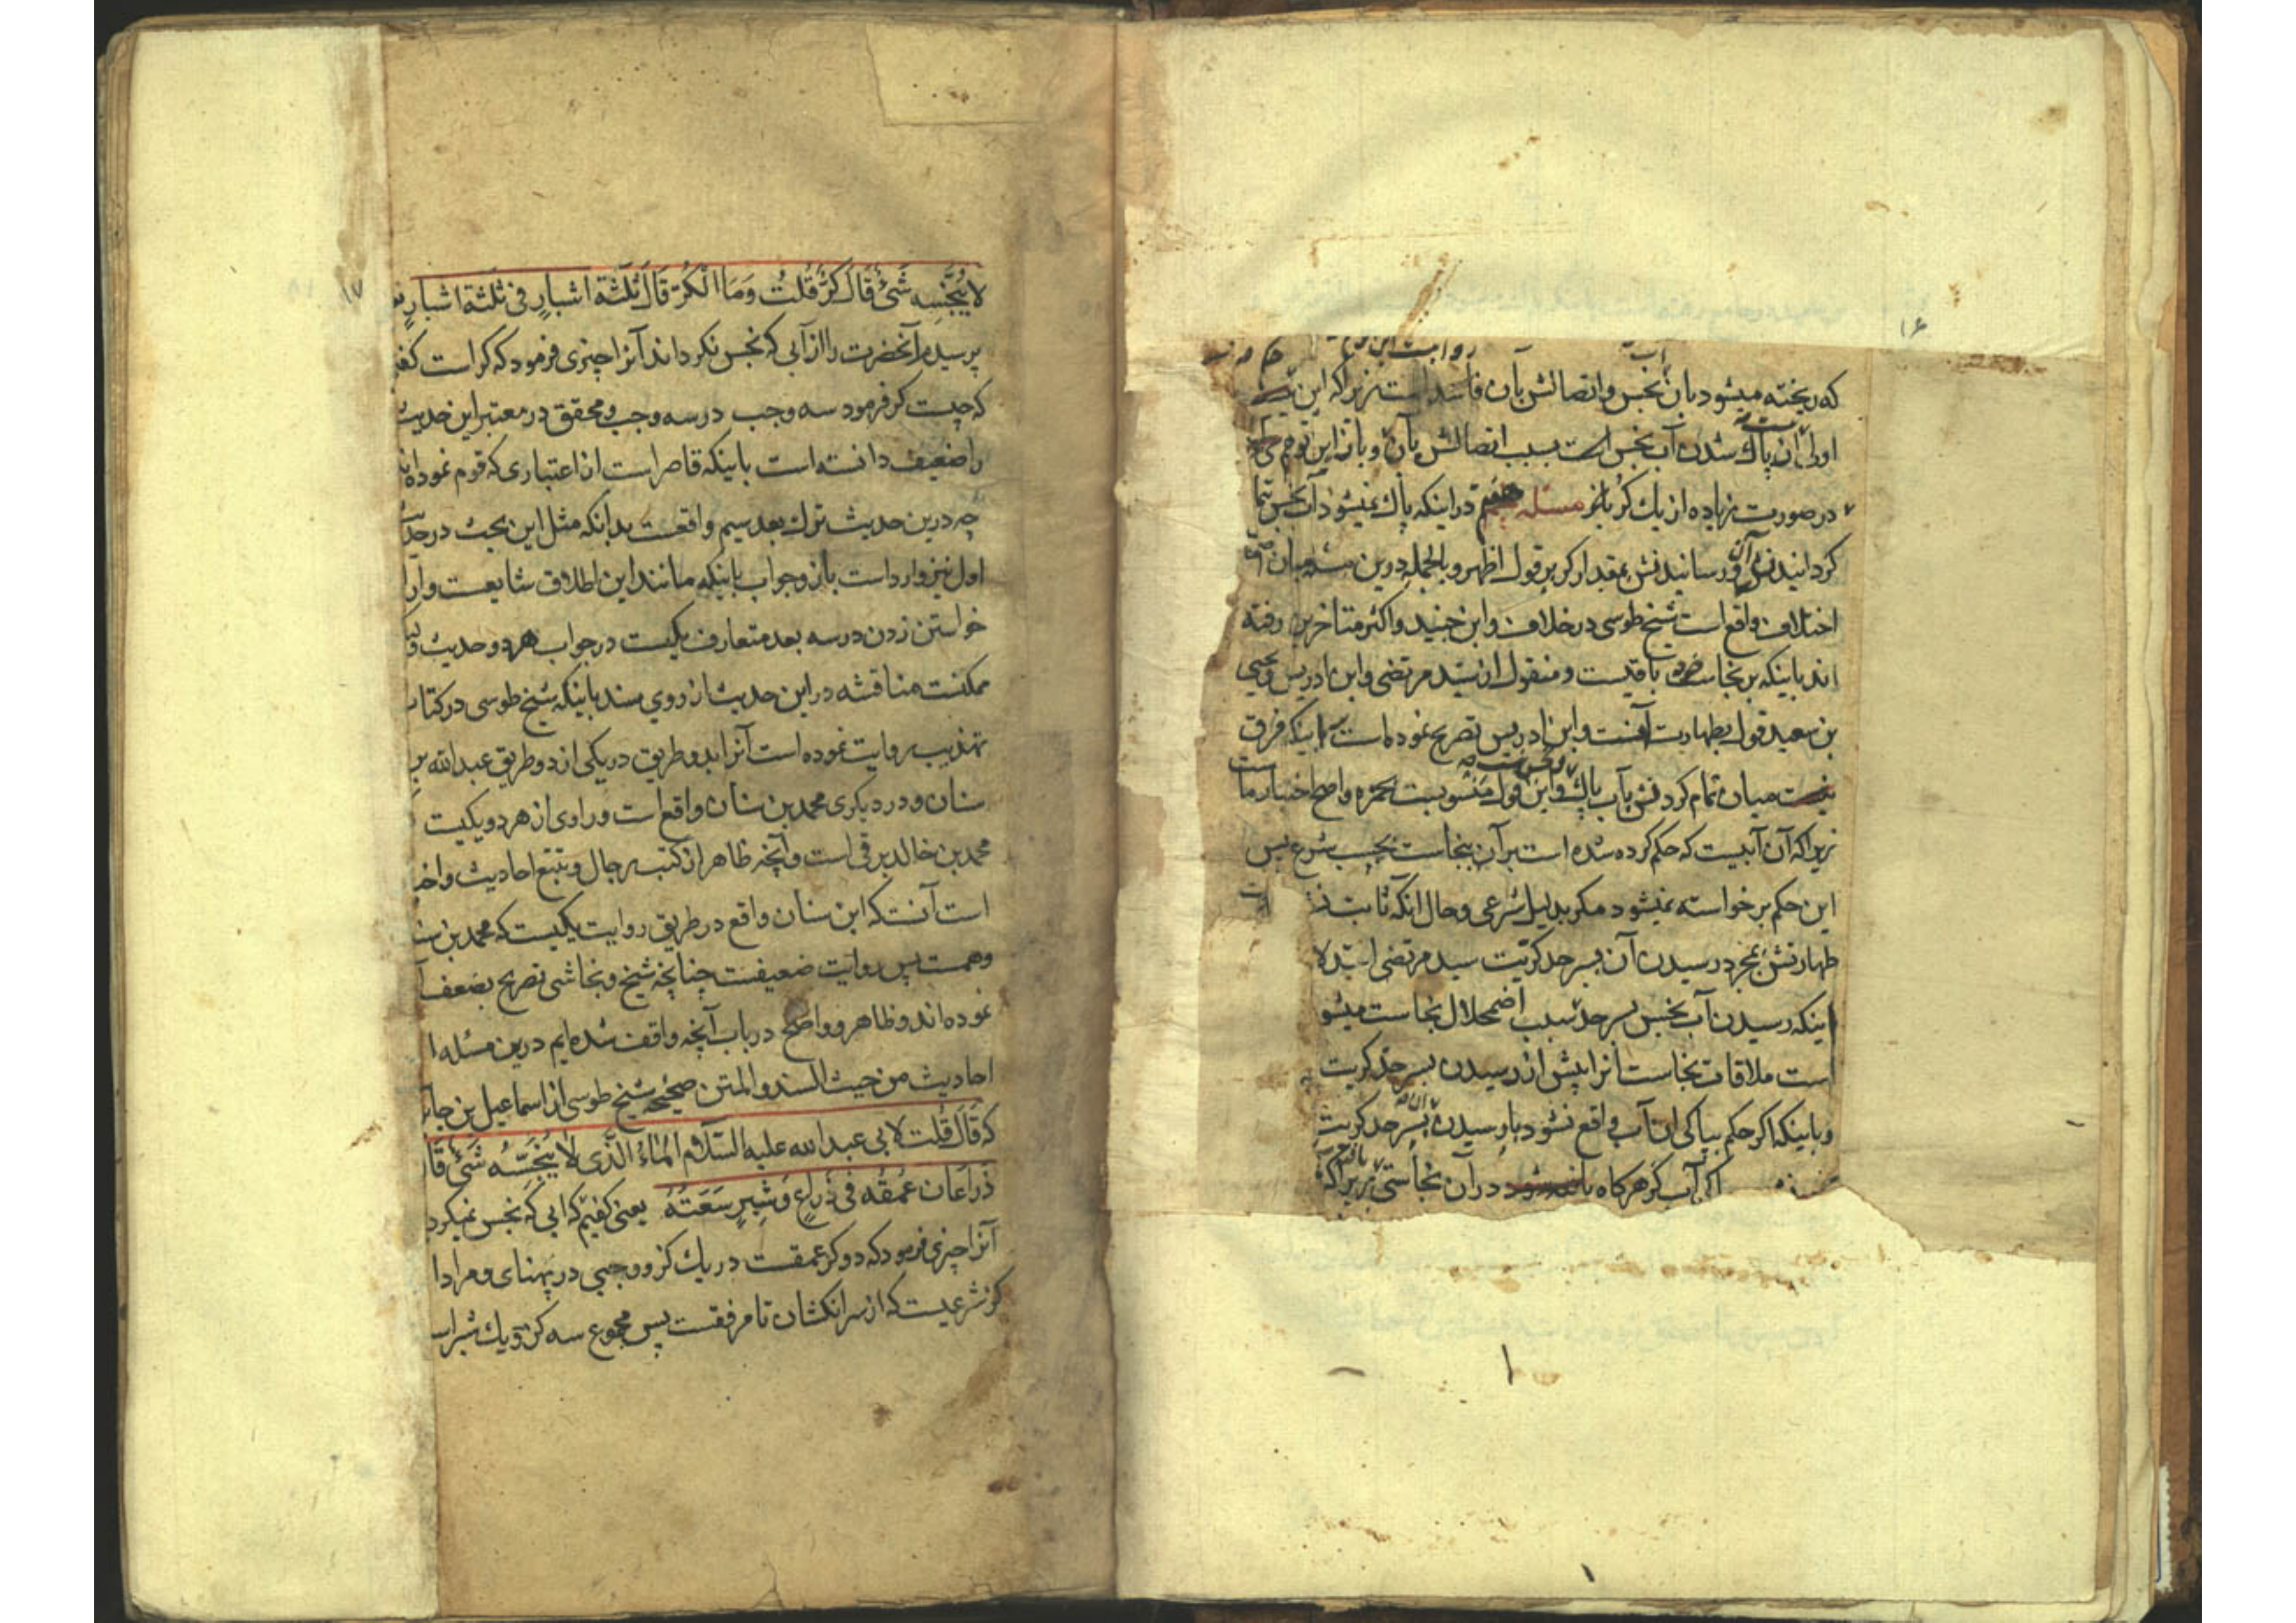 ۱۶
که ریخته میشود بان نجس و اتصالش بان فاسد است زیرا که این
اولی ان پاک شدن آب نجس است بسبب اتصالش بان و باز این توجیه
در صورت زیاده از یک کر بانر مسئله هفتم در اینکه پاک نمیشود آب نجس بتما
کردانیدنش و رسانیدنش بمقدار کر بر قول اظهر و بالجمله درین مسئله میان
اختلاف واقع است شیخ طوسی در خلاف و ابن جنید و اکثر متاخرین رفته
اند باینکه بر نجاست خود باقیست و منقول از سید مرتضی و ابن ادریس و یحیی
بن سعید قول بطهارت آنست و ابن ادریس تصریح نموده است باینکه فرق
نیست میان تمام کردنش بآب پاک و این قول منسوبست بحمزه و اصح اختیار ما
زیرا که آن آبیست که حکم کرده شده است بر آن بنجاست بحسب شرع پس
این حکم برخواسته نمیشود مکر بدلیل شرعی و حال انکه ثابت
طهارتش بمجرد رسیدن آن بسر حد کریت سید مرتضی استدلا
اینکه رسیدن آب نجس بسر حد سبب اضمحلال نجاست میشو
است ملاقات نجاست انرا پیش از رسیدن بسر حد کریت
و باینکه اکر حکم بپاکی ان آب واقع نشود بار رسیدن بسر حد کریت
اکر آب کر هرکاه در آن نجاستی زیرا که
۱۷
لا یُنَجِّسِه شَیْءٌ قَالَ کُرٌّ قُلتُ وَمَا الْکُرّ قَالَ ثَلثَة اشبارٍ فی ثلثة اشبارٍ
پرسیدم آنحضرت را از آبی که نجس نکرداند آنرا چیزی فرمود که کر است کفتم
که چیست کر فرمود سه وجب در سه وجب و محقق در معتبر این حدیث
را ضعیف دانسته است باینکه قاصر است از اعتباری که قوم نموده اند
چه درین حدیث ترک بعد سیم واقعست بدانکه مثل این بحث در حدیث
اول نیز وارد است بانر و جواب باینکه مانند این اطلاق شایعست و ارا
خواستن زدن در سه بعد متعارف یکیست در جواب هر دو حدیث
ممکنست مناقشه در این حدیث از روی سند باینکه شیخ طوسی در کتاب
تهذیب روایت نموده است آنرا بدو طریق در یکی از دو طریق عبدالله بن
سنان و در دیکری محمد بن سنان واقع است و راوی از هر دو یکیست
محمد بن خالد برقی است و آنچه ظاهر از کتب رجال و تتبع احادیث و اخبا
است آنست که ابن سنان واقع در طریق روایت یکیست که محمد بن
و همست پس روایت ضعیفست چنانچه شیخ و نجاشی تصریح بضعف
نموده اند و ظاهر و واضح در باب آنچه واقف شده ایم درین مسئله
احادیث من حیث السند و المتن صحیحه شیخ طوسی از اسماعیل بن جابر
که قَالَ قُلت لابی عبد الله علیه السَّلام المٰاءُ الذَّی لا یُنَجِّسُه شَیْءٌ قَالَ
ذراعَان عُمقُه فی ذراعٍ وَ شِبرٍ سَعَتُهُ یعنی کفتم که ابی که نجس نمیکرد
آنرا چیزی فرمود که دو کز عمقست در یک کز و وجبی در پهنای و مراد ا
کز شرعیست که از سر انکشتان تا مرفقست پس مجموع سه کز و یک شبر